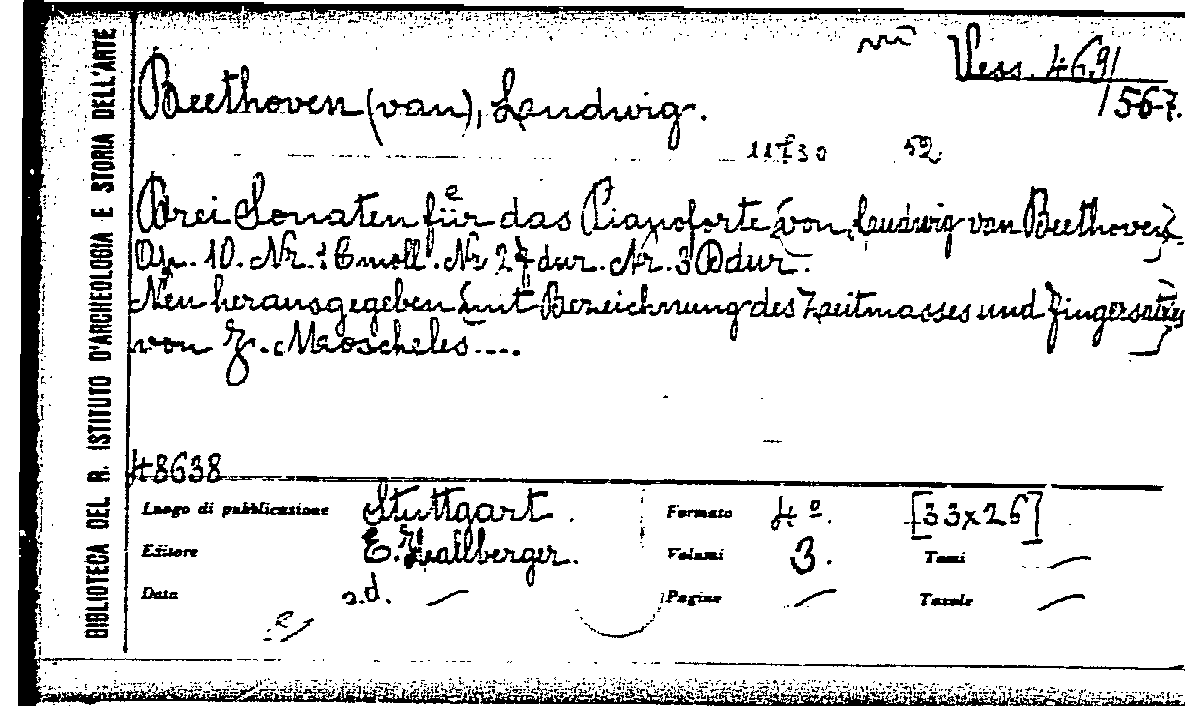 BIBLIOTECA DEL R. ISTITUTO D'ARCHEOLOGIA E STORIA DELL'ARTE
Vess. 469/
567.
Beethoven (van), Ludwig.
11730 52
Drei Sonaten für das Pianoforte von Ludwig van Beethoven
Op. 10. Nr. 1 C moll. Nr. 2 F dur. Nr. 3 D dur.
Neu herausgegeben mit Bezeichnung des Zeitmasses und Fingersatzes
von J. Moscheles....
48638
Luogo di pubblicazione Stuttgart.
Editore E. Hallberger.
Data s.d. —
Formato 4º. [33x26]
Volumi 3. Tomi —
Pagine — Tavole —